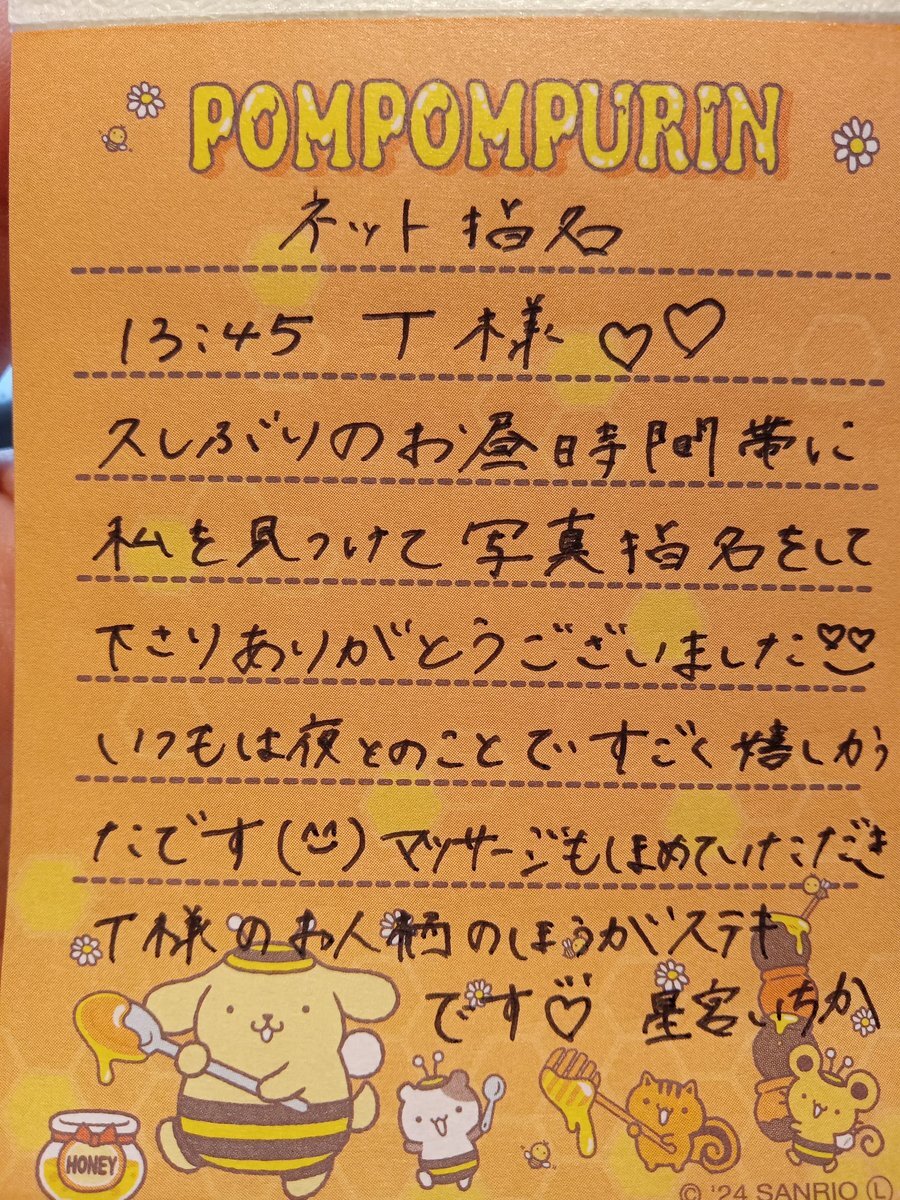 POMPOMPURIN
ネット指名
13:45 T様♡♡
久しぶりのお昼時間帯に
私を見つけて写真指名をして
下さりありがとうございました
いつもは夜とのことですごく嬉しかっ
たです(^^)マッサージもほめていただき
T様のお人柄のほうがステキ
です♡ 星宮いちか
HONEY
© '24 SANRIO Ⓛ